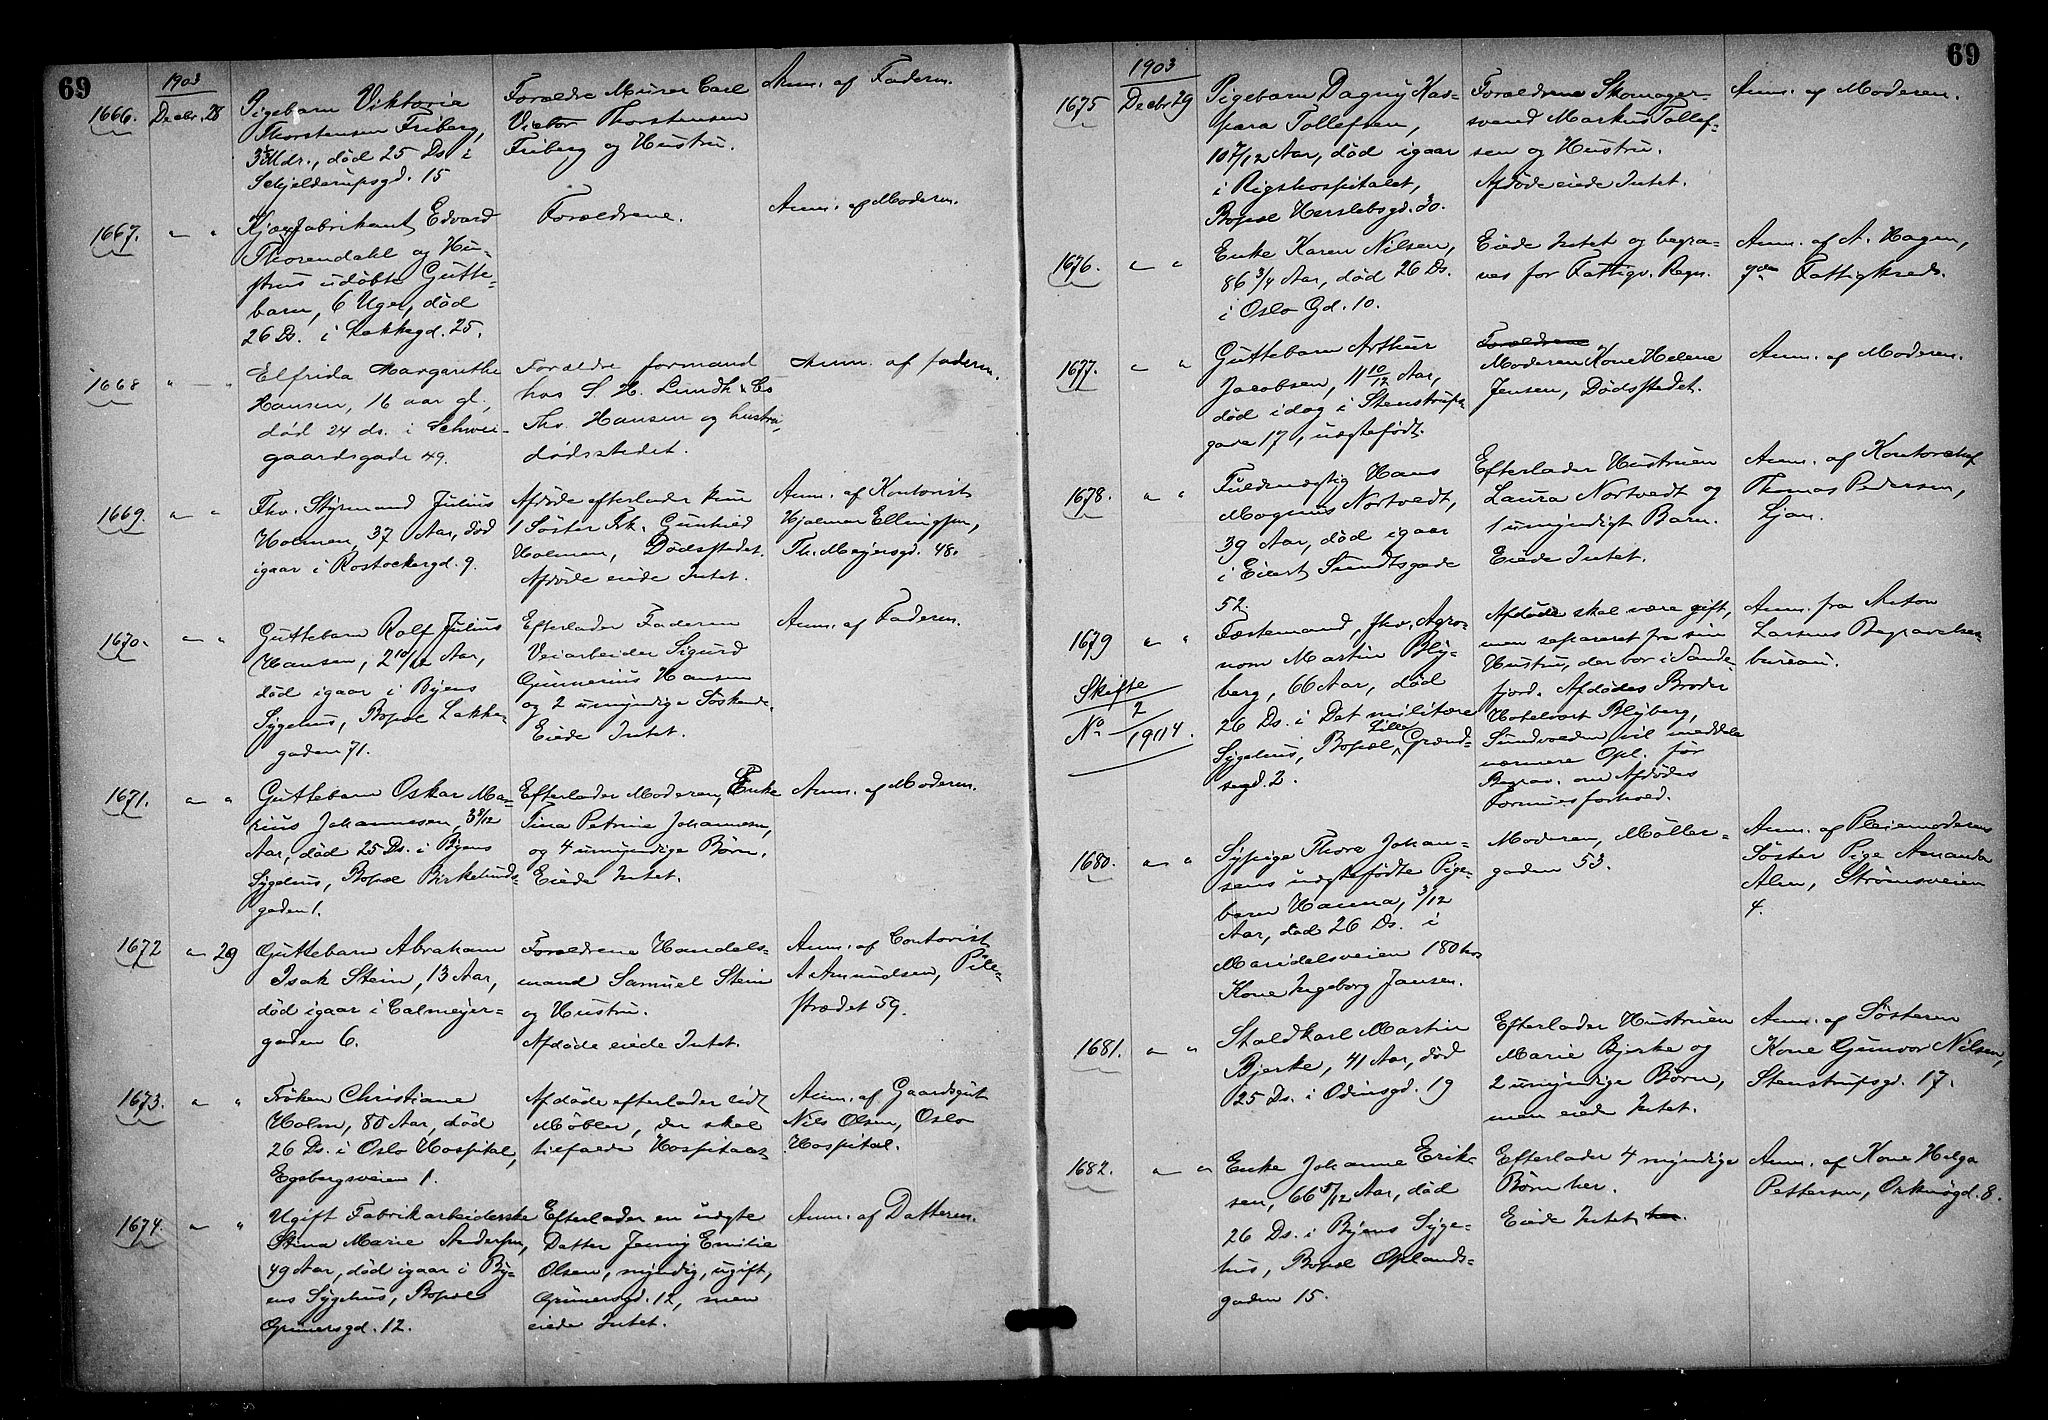 69
1903
1666. Decbr. 28
Pigebarn Viktoria
Thorstensen Friberg,
3½ Mdr., død 25 Ds. i
Schjelderupsgd. 15
Forældre Murer Carl
Victor Thorstensen
Friberg og Hustru.
Anm. af Faderen.
1667. " "
Edvard
Thorendahl og Hu-
strus udøbte Gutte-
barn, 6 Uger, død
26 Ds. i Lakkegd. 25.
Forældrene.
Anm. af Moderen.
1668 " — "
Elfrida Margarethe
Hansen, 16 aar gl.,
død 24 ds. i Schwei-
gaardsgade 49.
Forældre formand
hos S. H. Lundh & Co
Thv. Hansen og hustru,
dødsstedet.
Anm. af faderen.
1669. " "
Fhv. Styrmand Julius
Holmen, 37 Aar, død
igaar i Rostockergd. 9.
Afdøde efterlader kun
1 Søster Frk. Gunhild
Holmen, Dødsstedet.
Afdøde eiede Intet.
Anm. af Kontorist
Hjalmar Ellingsen,
Th. Meyersgd. 48.
1670. " "
Guttebarn Rolf Julius
Hansen, 2 10/12 Aar,
død igaar i Byens
Sygehus, Bopæl Lakke-
gaden 71.
Efterlader Faderen
Veiarbeider Sigurd
Gunnerius Hansen
og 2 umyndige Søskende.
Eiede Intet.
Anm. af Faderen.
1671. " "
Guttebarn Oskar Ma-
rius Johannesen, 3 3/12
Aar, død 25 Ds. i Byens
Sygehus, Bopæl Birkelunds-
gaden 1.
Efterlader Moderen, Enke
Tina Petrine Johannesen,
og 4 umyndige Børn.
Eiede Intet.
Anm. af Moderen.
1672 " 29
Guttebarn Abraham
Isak Stein, 13 Aar,
død igaar i Calmeyer-
gaden 6.
Forældrene Handels-
mand Samuel Stein
og Hustru.
Afdøde eiede Intet.
Anm. af Contorist
A Amundsen, Pile-
strædet 59.
1673. " "
Frøken Christiane
Holm, 80 Aar, død
26 Ds. i Oslo Hospital,
Egebergsveien 1.
Afdøde efterlader lidt
Møbler, der skal
tilfalde Hospitalet.
Anm. af Gaardsgut
Nils Olsen, Oslo
Hospital.
1674. " "
Ugift Fabrikarbeiderske
Stina Marie Andersen,
49 Aar, død igaar i By-
ens Sygehus, Bopæl
Grünersgd. 12.
Efterlader en uægte
Datter Jenny Emilie
Olsen, myndig, ugift,
Grünersgd. 12, men
eiede Intet.
Anm. af Datteren.
69
1903
1675 Decbr 29
Pigebarn Dagny Kas-
para Tollefsen,
10 7/12 Aar, død igaar
i Rigshospitalet,
Bopæl Herslebsgd. 30.
Forældrene Skomager-
svend Markus Tollef-
sen og Hustru.
Afdøde eiede Intet.
Anm. af Moderen.
1676. " "
Enke Karen Nilsen,
86 3/4 Aar, død 26 Ds.
i Oslo Gd. 10.
Eiede Intet og begra-
ves for Fattigv. Regn.
Anm. af A. Hagen,
7de Fattigkreds.
1677. " "
Guttebarn Arthur
Jacobsen, 11 10/12 Aar,
død idag i Stenstrups-
gade 17, uægtefødt.
Forældrene
Moderen Kone Helene
Jensen, Dødsstedet.
Anm. af Moderen.
1678. " "
Fuldmægtig Hans
Magnus Nortvedt,
39 Aar, død igaar
i Eilert Sundtsgade
52.
Efterlader Hustruen
Laura Nortvedt og
1 umyndigt Barn.
Eiede Intet.
Anm. af Kontorchef
Thomas Pedersen,
Ljan.
1679 " "
Skifte
No 2/1914.
Fæstemand, fhv. Agro-
nom Martin Bly-
berg, 66 Aar, død
26 Ds. i Det militære
Sygehus, Bopæl Lille Grænd-
segd. 2.
Afdøde skal være gift,
men separeret fra sin
Hustru, der bor i Sande-
fjord. Afdødes Broder
Hotelvært Blyberg,
Sundvolden vil meddele
nærmere Opl. før
Begrav. om Afdødes
Formuesforhold.
Anm. fra Anton
Larsens Begravelses-
bureau.
1680. " "
Sypige Thora Johan-
sens uægtefødte Pige-
barn Hanna, 3/12
Aar, død 26 Ds. i
Maridalsveien 180 hos
Kone Ingeborg Jansen.
Moderen, Møller-
gaden 53.
Anm. af Pleiemoderens
Søster Pige Amanda
Alm, Strømsveien
4.
1681. " "
Staldkarl Martin
Bjerke, 41 Aar, død
25 Ds. i Odinsgd. 19
Efterlader Hustruen
Marie Bjerke og
2 umyndige Børn,
men eiede Intet.
Anm. af Søsteren
Kone Gunvor Nilsen,
Stenstrupsgd. 17.
1682. " "
Enke Johanne Erik-
sen, 66 5/12 Aar, død
26 Ds. i Byens Syge-
hus, Bopæl Oplands-
gaden 15.
Efterlader 4 myndige
Børn her.
Eiede Intet her.
Anm. af Kone Helga
Pettersen, Orknøgd. 8.